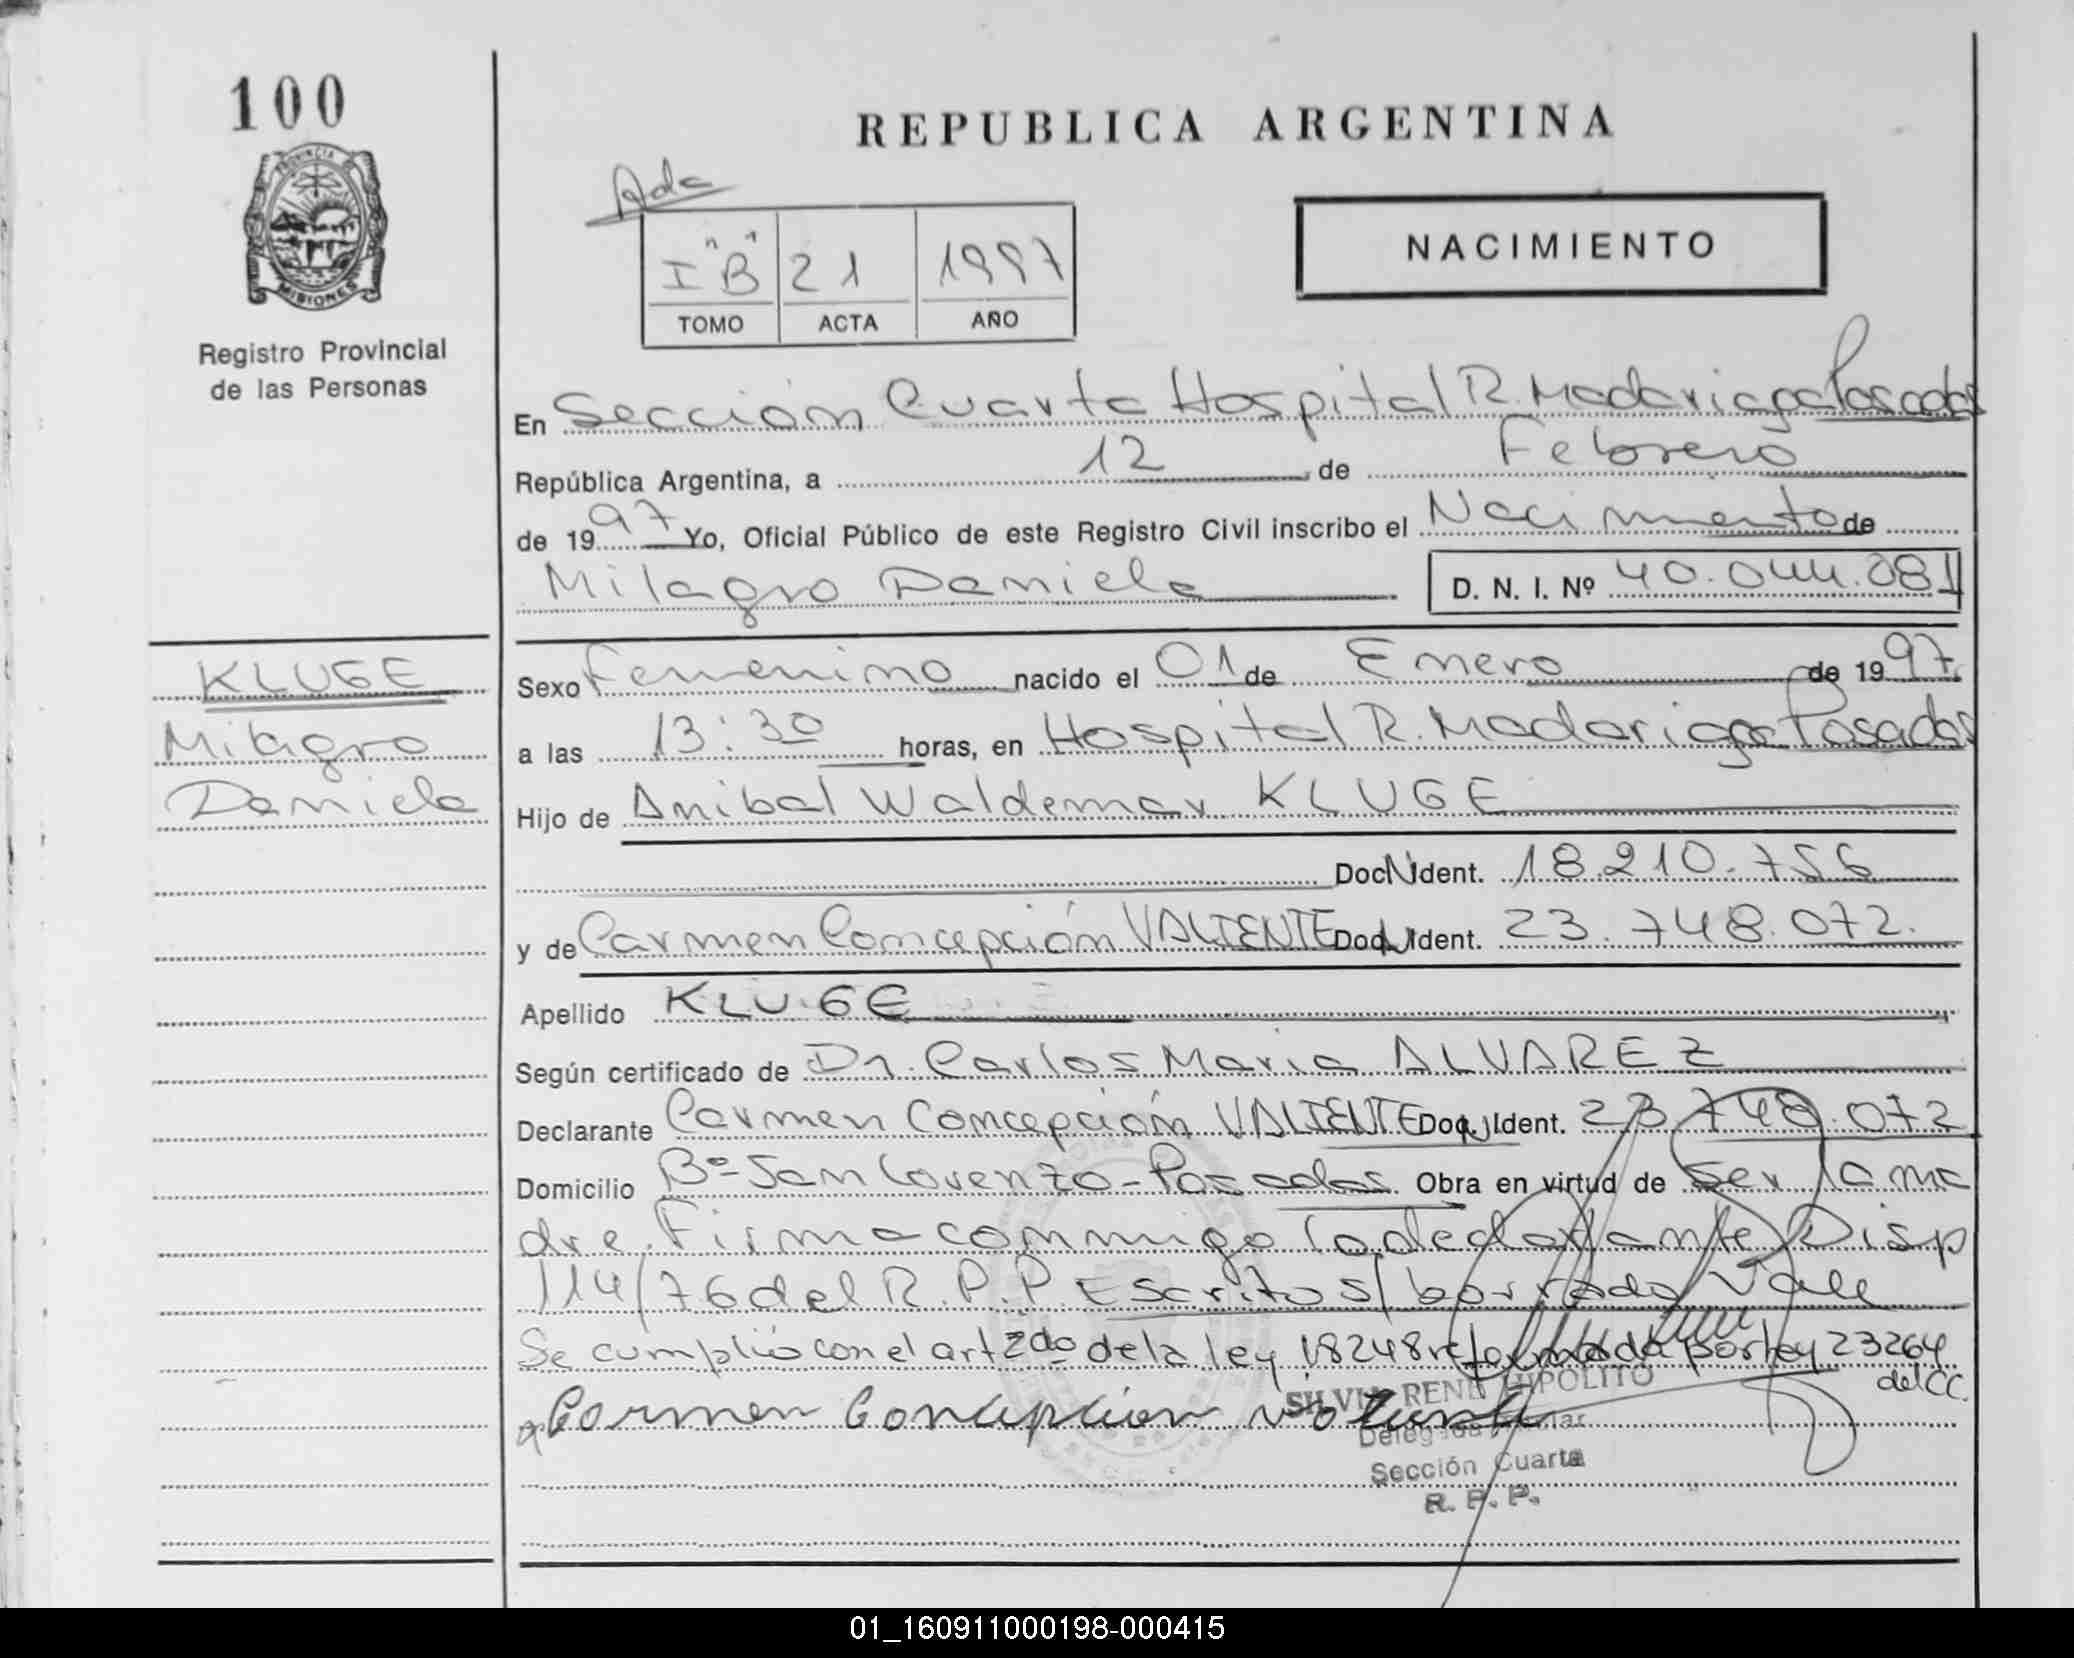 100
PROVINCIA
MISIONES
Registro Provincial
de las Personas
REPUBLICA ARGENTINA
Ada
I "B" 21 1997
TOMO ACTA AÑO
NACIMIENTO
En Sección Cuarta Hospital R. Madariaga Posadas
República Argentina, a 12 de Febrero
de 1997 Yo, Oficial Público de este Registro Civil inscribo el Nacimiento de
Milagro Daniela D. N. I. Nº 40.044.081
KLUGE
Milagro
Daniela
Sexo Femenino nacido el 01 de Enero de 1997
a las 13:30 horas, en Hospital R. Madariaga Posadas
Hijo de Anibal Waldemar KLUGE
Doc. Ident. 18.210.756
y de Carmen Concepción VALIENTE Doc. Ident. 23.748.072.
Apellido KLUGE
Según certificado de Dr. Carlos Maria ALVAREZ
Declarante Carmen Concepción VALIENTE Doc. Ident. 23.748.072
Domicilio Bº San Lorenzo - Posadas. Obra en virtud de ser la ma
dre. Firma conmigo la declarante Disp
114/76 del R.P.P. Escritos/borrado Vale
Se cumplió con el art 2do de la ley 18248 reformada por ley 23264
del CC.
Carmen Concepcion
RENE HIPOLITO
Sección Cuarta
R. P. P.
01_160911000198-000415